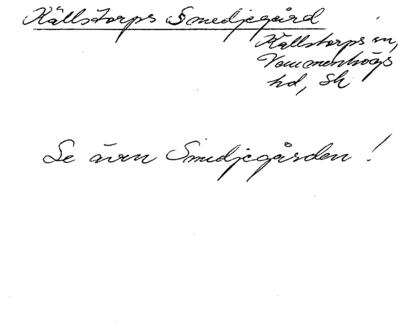 Källstorps Smedjegård
Källstorps sn,
Vemmenhögs
hd, Sk
Se även Smedjegården!